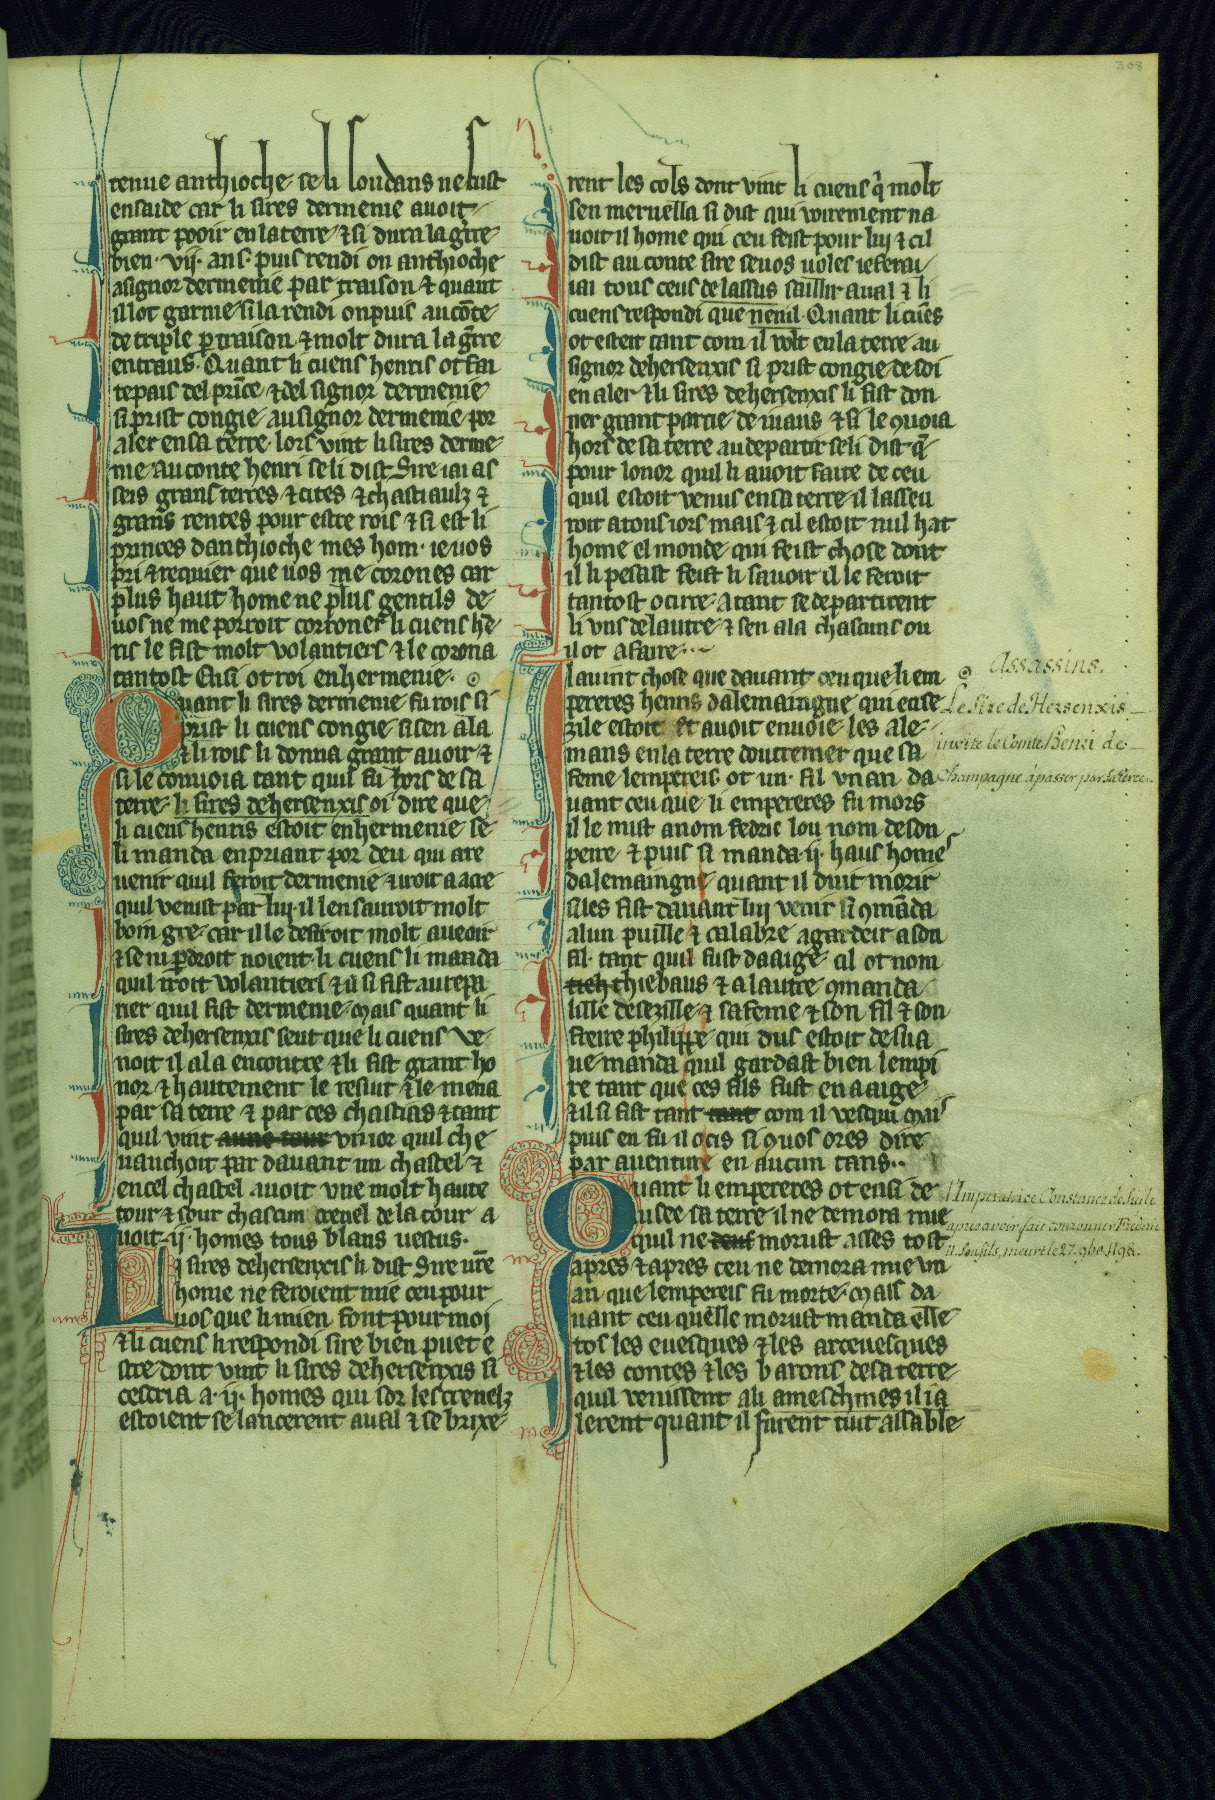 308
tenue anthioche se li soudans ne fust
en saide car li sires dermenie auoit
grant pooir en la terre ⁊ si dura la gere
bien .vij. ans. puis rendi on anthioche
a signor dermenie par traison ⁊ quant
il lot garnie si la rendi on puis au cōte
de triple p traison ⁊ molt dura la gēre
entraus. Quant li cuens henris ot fai
te pais del prīce ⁊ del signor dermenie
si prist congie au signor dermenie por
aler en sa terre. lors vint li sires derme
nie au conte henri se li dist Sire iai as
seis grans terres ⁊ cites ⁊ chastiaulz ⁊
grans rentes pour estre rois ⁊ si est li
princes danthioche mes hom. ie uos
pri ⁊ requier que uos me corones car
plus haut home ne plus gentils de
uos ne me porroit coroner li cuens he
ris le fist molt volantiers ⁊ le corona
tantost Ensi ot roi en hermenie.
Quant li sires dermenie fu rois si
prist li cuens congie si sen ala
⁊ li rois li donna grant auoir ⁊
si le conuoia tant quil fu hors de sa
terre. li sires de hersenxis oi dire que
li cuens henris estoit en hermenie se
li manda en priant por deu qui are
uenir quil feroit dermenie ⁊ iroit a acre
quil venist par lui. il len sauroit molt
boin gre. car il le desiroit molt a ueoir
⁊ se ni pdroit noient. li cuens li manda
quil iroit volantiers ⁊ si fist au repa
rier quil fist dermenie. mais quant li
sires de hersenxis seut que li cuens ve
noit il ala encontre ⁊ li fist grant ho
nor ⁊ hautement le resiut ⁊ le mena
par sa terre ⁊ par ces chastias ⁊ tant
quil vint vn ior quil che
uauchoit par dauant un chastel ⁊
en cel chastel auoit vne molt haute
tour ⁊ sour chascun crenel de la tour a
uoit .ij. homes tous blans uestus.
Li sires de hersenxis li dist Sire ure
home ne feroient mie ceu pour
uos que li mien font pour moi
⁊ li cuens li respondi sire bien puet e
stre dont vint li sires de hersenxis si
cescria a .ij. homes qui sor les crenelz
estoient se lancerent aual ⁊ se brixe
rent les cols dont vint li cuens q molt
sen merueilla si dist qui voirement na
uoit il home qui ceu feist pour lui ⁊ cil
dist au conte sire se uos uoles ie ferai
iai tous ceus de lassus saillir aual ⁊ li
cuens respondi que nenil. Quant li cuēs
ot esteit tant com il volt en la terre au
signor de hersenxis si prist congie de soi
en aler ⁊ li sires de hersenxis li fist don
ner grant partie de iuaus ⁊ si le quoia
hors de sa terre au departir se li dist q̄
pour lonor quil li auoit faite de ceu
quil estoit venus en sa terre il lasseu
roit a tous iors mais ⁊ cil estoit nul hat
home el monde qui feist chose dont
il li pesast feist li sauoir il le feroit
tantost ocirre. Atant se departirent
li vns de lautre ⁊ sen ala chascuns ou
il ot a faire.
I lauint chose que dauant ceu que li em
pereres henris dalemaingne qui en se
zile estoit Et auoit enuoie les ale
mans en la terre doutremer que sa
feme lempereis. ot un. fil vn an da
uant ceu que li empereres fu mors
il le mist a nom fedric lou nom de son
peire ⁊ puis si manda .ij. haus homes
dalemaingne quant il duit morir
si les fist dauant lui venir si cmāda
a lun puille ⁊ calabre a gardeir a son
fil. tant quil fust da aige cil ot nom
thiebaus ⁊ a lautre cmanda
lille de sezille ⁊ sa feme ⁊ son fil ⁊ son
freire philippe qui dus estoit de sua
ue manda quil gardast bien lempi
re tant que ces fils fust en aaige
⁊ il si fist tant com il vesqui mais
puis en fu il ocis si quos ores dire
par auenture en aucun tans.
Quant li empereres ot ensi de
uisee sa terre il ne demora mie
quil ne morust asses tost
apres ⁊ apres ceu ne demora mie vn
an que lempereis fu morte. mais da
uant ceu quelle morust manda elle
tos les euesques ⁊ les arceuesques
⁊ les contes ⁊ les barons de sa terre
quil venissent a li a meschines il i a
lerent quant il furent tuit assable
Assassins.
Le Sire de Hersenxis
invite le Comte Henri de
Champagne à passer par sa terre.
l'Imperatrice Constance de Sicile
après avoir fait couronner Frederic
II. son fils, meurt le 27. 9bre 1198.